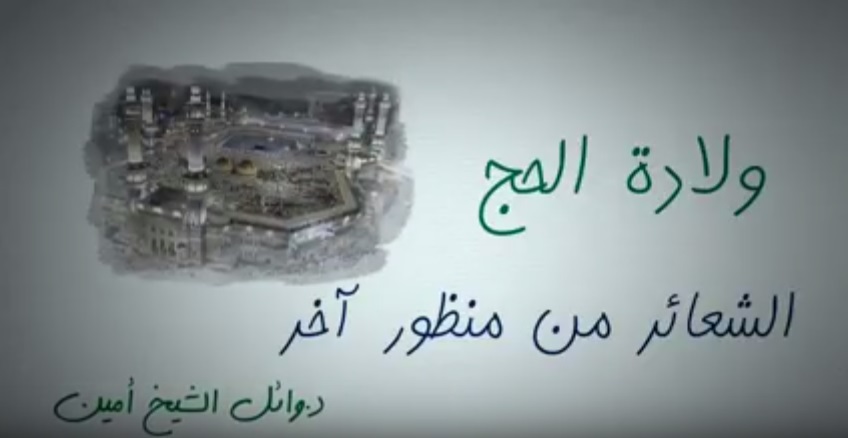 ولادة الحج
الشعائر من منظور آخر
د.وائل الشيخ أمين